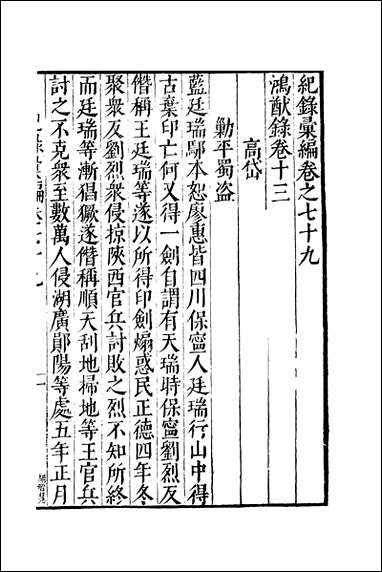 紀錄彙編卷之七十九
鴻猷錄卷十三
高岱
勦平蜀盜
藍廷瑞鄢本恕廖惠皆四川保寧人廷瑞行山中得
古棄印亡何又得一劍自謂有天瑞時保寧劉烈反
僭稱王廷瑞等遂以所得印劍煽惑民正德四年冬
聚衆反劉烈衆侵掠陝西官兵討敗之烈不知所終
而廷瑞等漸猖獗遂僭稱順天刮地掃地等王官兵
討之不克衆至數萬人侵湖廣鄖陽等處五年正月